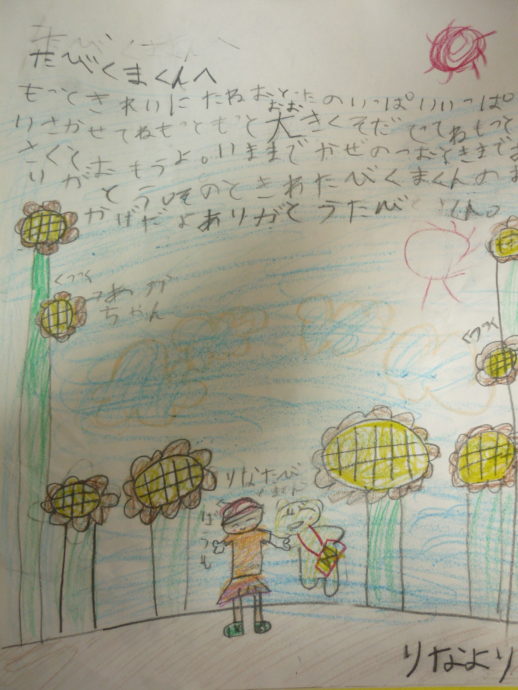 たびくまくんへ
もっときれいにたねおとったのいっぱいいっぱ
いさかせてねもっともっと大きくそだててねもっと
おお
さくとおもうよ。いままでかぜのつおときまであ
りがとうそのときわたびくまくんのお
かげだよありがとうたびくん。
くっつく
ちゃん
くっつく
りなたび
くまくん
りなより